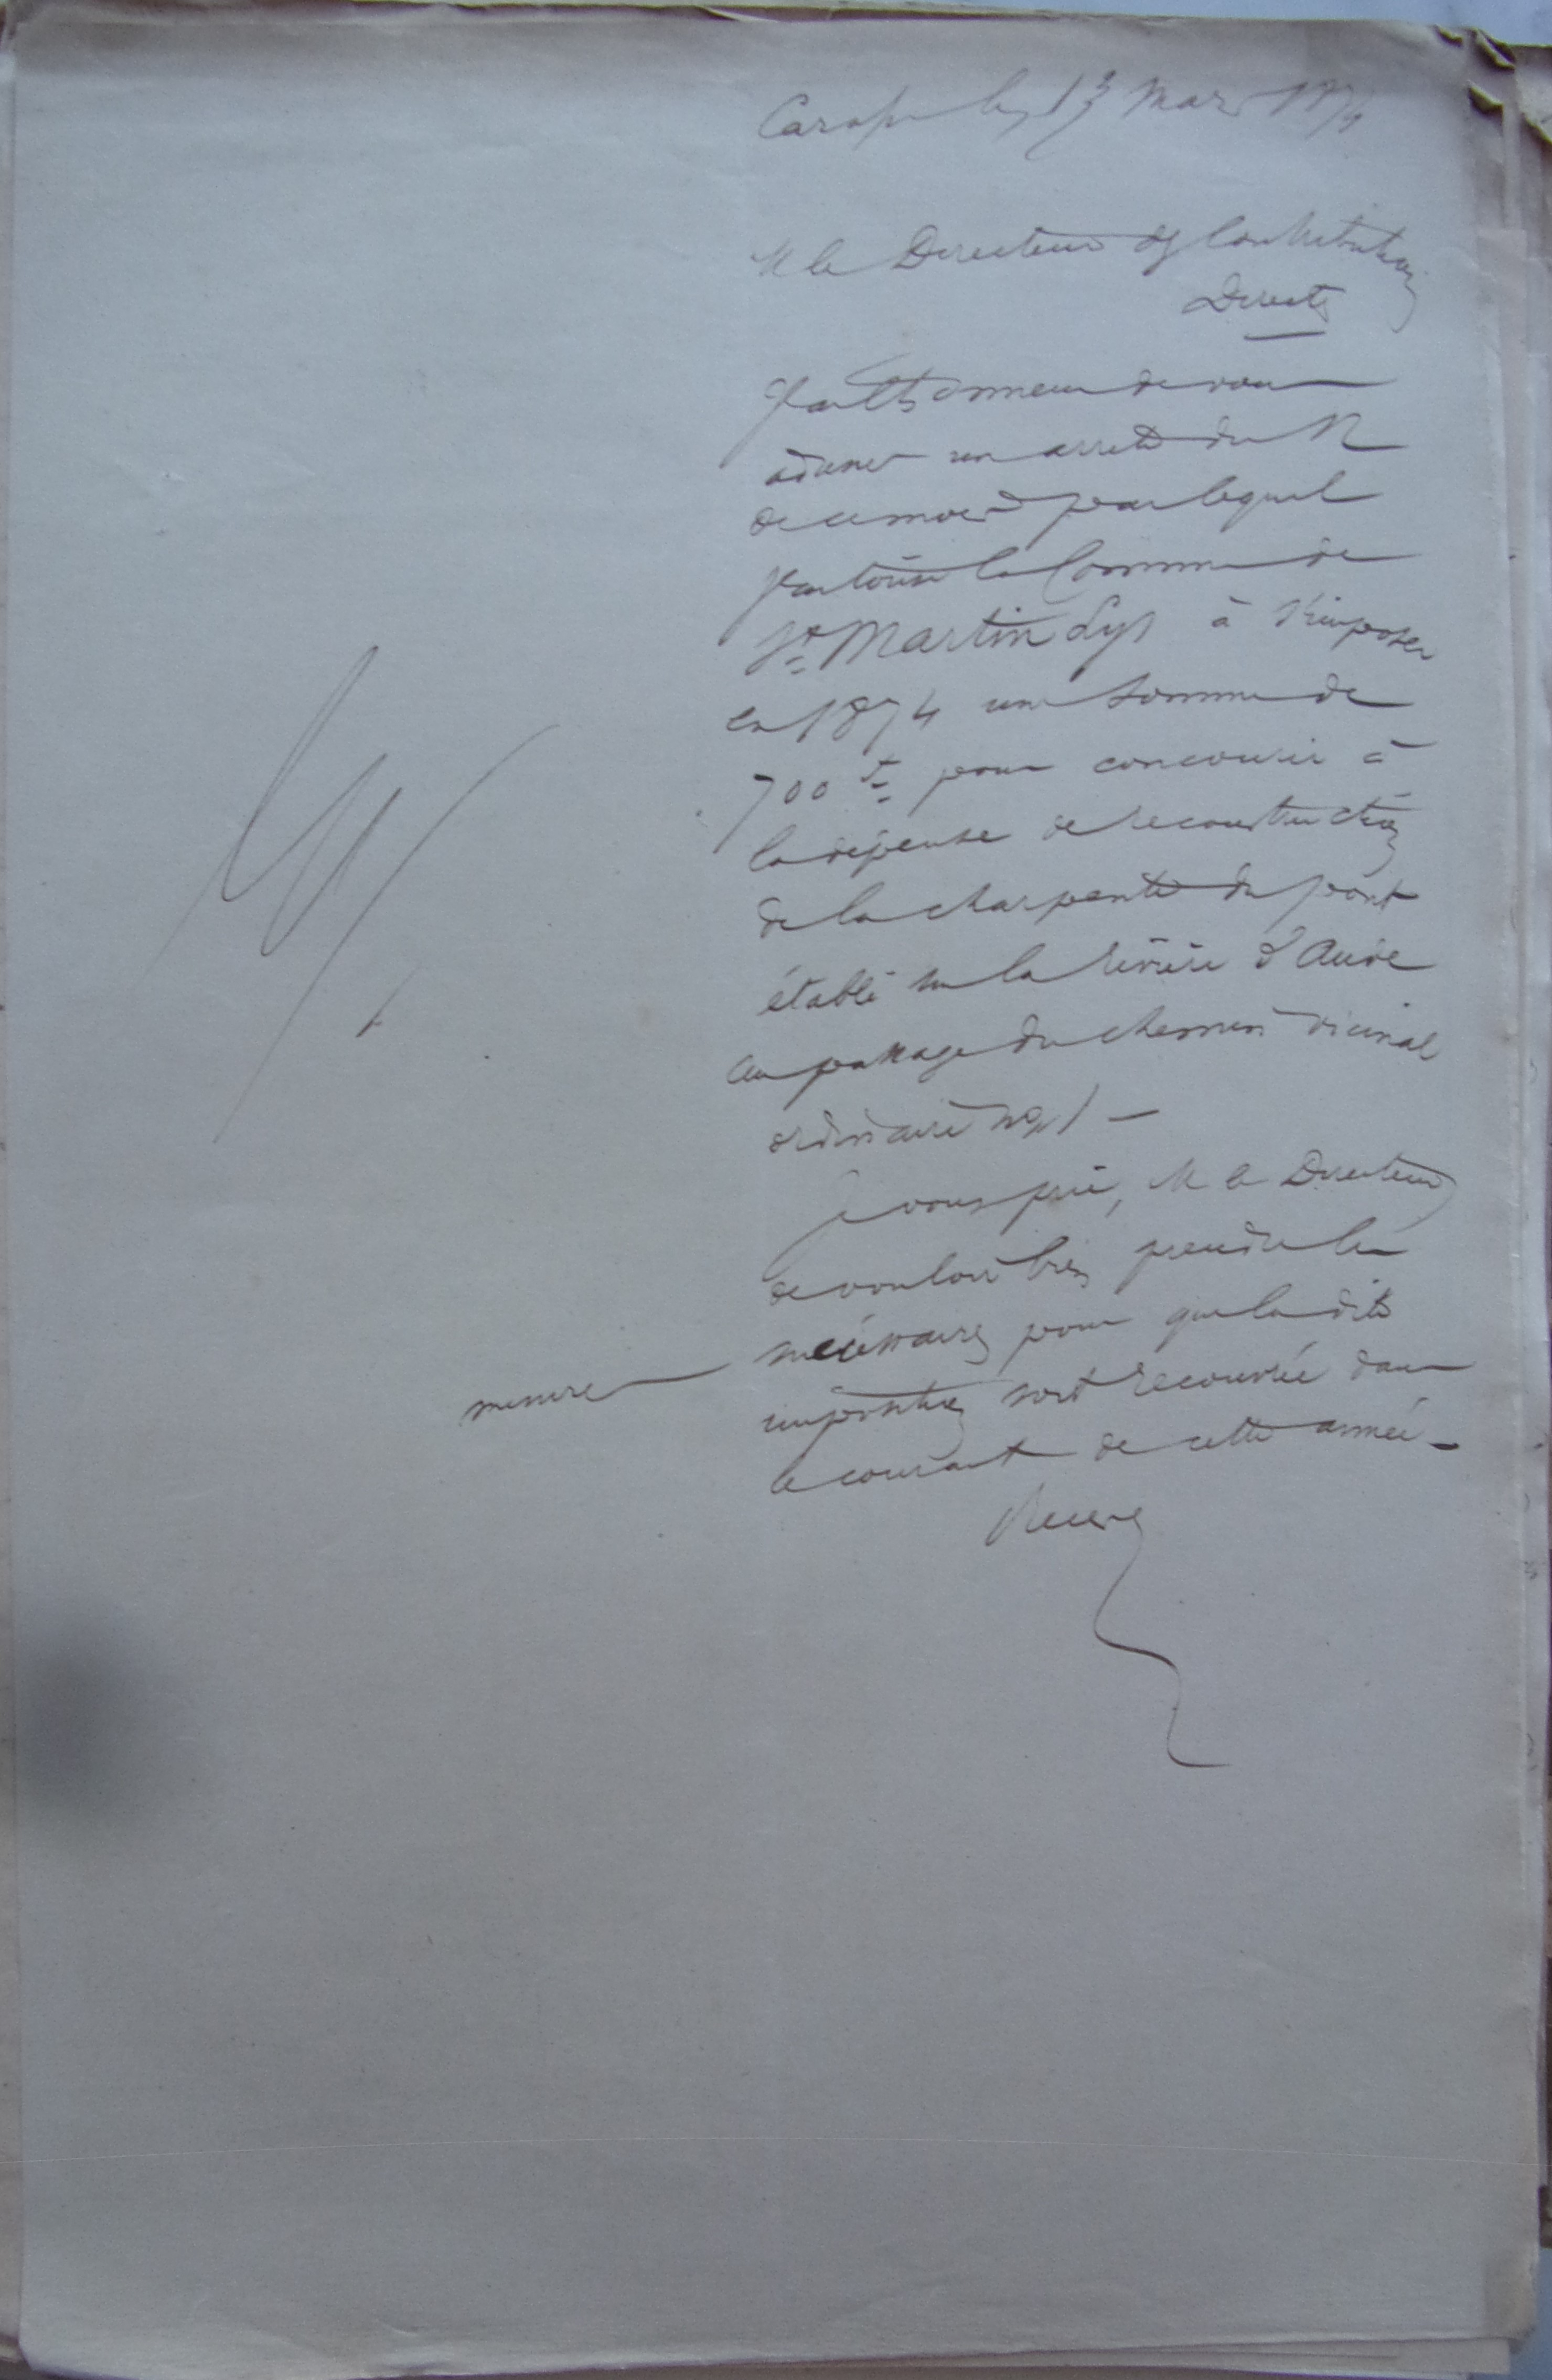 le 13 Mars 1874
M le Directeur des Contributions
Directes
J'ai l'honneur de vous
adresser un arrêté du 12
de ce mois par lequel
j'autorise la Commune de
St Martin Lys à s'imposer
en 1874 une somme de
700 f pour concourir à
la dépense de reconstruction
de la charpente du pont
établi sur la rivière d'Aude
au passage du chemin vicinal
ordinaire no 1 —
Je vous prie, M le Directeur
de vouloir bien prendre les
mesures
nécessaires pour que la dite
imposition soit recouvrée dans
le courant de cette année —